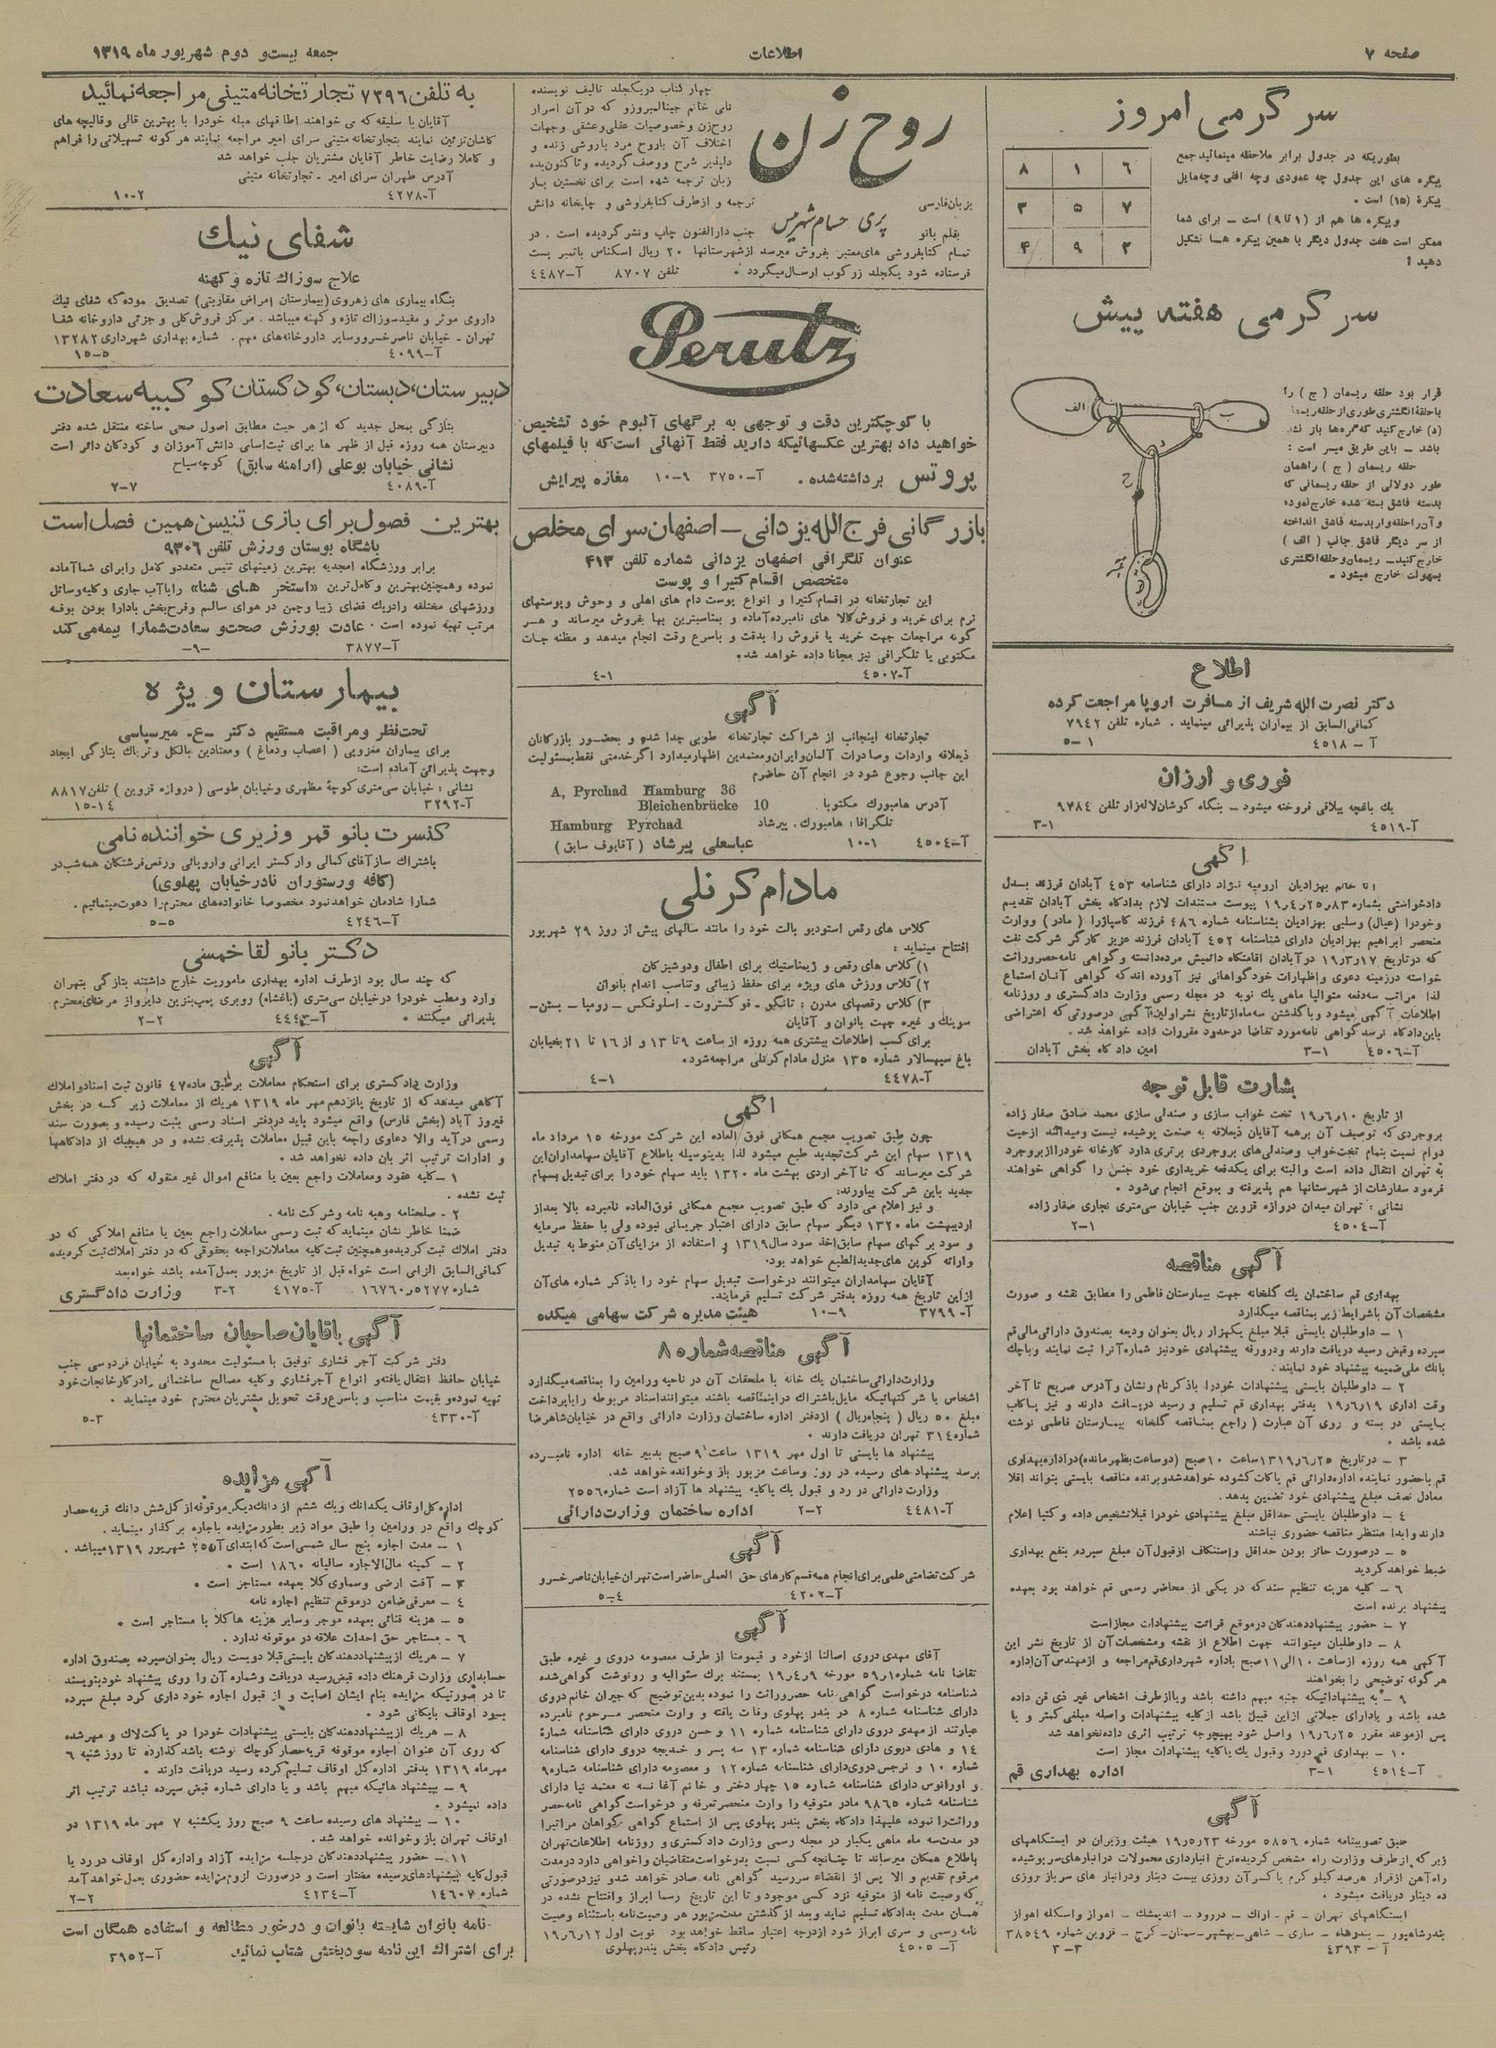 صفحه ۷
اطلاعات
جمعه بیست‌و دوم شهریور ماه ۱۳۱۹
سرگرمی امروز
بطوریکه در جدول برابر ملاحظه مینمائید جمع
پیکره های این جدول چه عمودی وچه افقی وچه‌مایل
پیکرهٔ (۱۵) است ۰
وپیکره ها هم از (۱ تا ۹) است ــ برای شما
ممکن است هفت جدول دیگر با همین پیکره هـا تشکیل
دهید !
۶ ۱ ۸
۷ ۵ ۳
۲ ۹ ۴
سرگرمی هفته پیش
قرار بود حلقه ریسمان ( ج ) را
باحلقهٔ انگشتری طوری از حلقه ریسمان
(د) خارج کنید که گره‌ها باز نشده
باشد ــ باین طریق میسر است :
حلقه ریسمان ( ج ) را همان
طور دولائی از حلقه ریسمانی که
بدسته قاشق بسته شده خارج نموده
و آن را حلقه وار بدسته قاشق انداخته
از سر دیگر قاشق جانب ( الف )
خارج کنید ــ ریسمان وحلقه انگشتری
بسهولت خارج میشود ــ
الف
ب
د
ج
اطلاع
دکتر نصرت الله شریف از مسافرت اروپا مراجعت کرده
کمافی‌السابق از بیماران پذیرائی مینماید . شماره تلفن ۷۹۴۲
آ ــ ۴۵۱۸ ۱ــ۵
فوری و ارزان
یك باغچه ییلاقی فروخته میشود ــ بنگاه کوشان لاله‌زار تلفن ۹۷۸۴
آ-۴۵۱۹ ۱-۳
آگهی
آنا خانم بهزادیان ارومیه نژاد دارای شناسنامه ۴۵۳ آبادان فرزند بسدل
دادخواستی بشماره ۸۳ر۲۵ر۴ر۱۹ پیوست مستندات لازم بدادگاه بخش آبادان تقدیم
وخودرا (عیال) وسلبی بهزادیان بشناسنامه شماره ۴۸۶ فرزند کاسپازرا ( مادر ) ووارث
منحصر ابراهیم بهزادیان دارای شناسنامه ۴۵۲ آبادان فرزند عزیز کارگر شرکت نفت
که درتاریخ ۱۷ر۳ر۱۹ درآبادان اقامتگاه دائمیش مرده‌دانسته و گواهی نامه حصروراثت
خواسته درزمینه دعوی و اظهارات خود گواهانی نیز آورده اند که گواهی آنـان استماع
لذا مراتب سه‌دفعه متوالیا ماهی یك نوبه در مجله رسمی وزارت دادگستری و روزنامه
اطلاعات آگهی میشود وبا گذشتن سه‌ماه از تاریخ نشر اولین آگهی درصورتی که اعتراضی
باین دادگاه نرسد گواهی نامه مورد تقاضا درحدود مقررات داده خواهد شد .
آ-۴۵۰۶ ۱-۳ امین دادگاه بخش آبادان
بشارت قابل توجه
از تاریخ ۱۰ر۶ر۱۹ تخت خواب سازی و صندلی سازی محمد صادق صفار زاده
بروجردی که توصیف آن برهمه آقایان ذیعلاقه به صنعت پوشیده نیست ومیدانند ازحیث
دوام نسبت بتمام تختخواب وصندلی‌های بروجردی برتری دارد کارخانه خودرا ازبروجرد
به تهران انتقال داده است والبته برای یکدفعه خریداری خود جنس را گواهی خواهند
فرمود سفارشات از شهرستانها هم پذیرفته و بموقع انجام می‌شود ۰
نشانی : تهران میدان دروازه قزوین جنب خیابان سی‌متری نجاری صفارزاده
آ-۴۵۰۴ ۱-۲
آگهی مناقصه
بهداری قم ساختمان یك گلخانه جهت بیمارستان فاطمی را مطابق نقشه و صورت
مشخصات آن باشرایط زیر بمناقصه میگذارد
۱ ــ داوطلبان بایستی قبلا مبلغ یکهزار ریال بعنوان ودیعه بصندوق دارائی مالی قم
سپرده وقبض رسید دریافت دارند ودرورقه پیشنهادی خودنیز شماره آنرا ثبت نمایند وباچك
بانك ملی ضمیمه پیشنهاد خود نمایند .
۲ ــ داوطلبان بایستی پیشنهادات خودرا باذکر نام ونشان وآدرس صریح تا آخر
وقت اداری ۱۹ر۶ر۱۹ بدفتر بهداری قم تسلیم و رسید دریـافت دارند و نیز پـاکات
بـایستی در بسته و روی آن عبارت ( راجع بمناقصه گلخانه بیمارستان فاطمی نوشته
شده باشد ۰
۳ ــ درتاریخ ۲۵ر۶ر۱۳۱۹ ساعت ۱۰ صبح (دوساعت بظهر مانده) دراداره بهداری
قم باحضور نماینده اداره دارائی قم پاکات گشوده خواهد شد وبرنده مناقصه بایستی بتواند اقلا
معادل نصف مبلغ پیشنهادی خود تضمین بدهد.
۴ ــ داوطلبان بایستی حداقل مبلغ پیشنهادی خودرا قبلا تشخیص داده و کتبا اعلام
دارند وابدا منتظر مناقصه حضوری نباشند
۵ ــ درصورت حائز بودن حداقل واستنکاف ازقبول آن مبلغ سپرده بنفع بهداری
ضبط خواهد گردید
۶ ــ کلیه هزینه تنظیم سند که در یکی از محاضر رسمی قم خواهد بود بعهده
پیشنهاد برنده است
۷ ــ حضور پیشنهاد دهندگان درموقع قرائت پیشنهادات مجاز است
۸ ــ داوطلبان میتوانند جهت اطلاع از نقشه ومشخصات آن از تاریخ نشر این
آگهی همه روزه ازساعت ۱۰ الی ۱۱ صبح باداره شهرداری قم مراجعه و ازمهندس آن اداره
هر گونه توضیحی را بخواهند
۹ ــ به پیشنهاداتیکه جنبه مبهم داشته باشد ویا ازطرف اشخاص غیر ذی فن داده
شده باشد و یادارای جملاتی ازاین قبیل باشد ازکلیه پیشنهادات واصله مبلغی کمتر و یا
پس ازموعد مقرر ۲۵ر۶ر۱۹ واصل شود بهیچوجه ترتیب اثری داده نخواهد شد
۱۰ ــ بهداری قم دررد وقبول یك یا کلیه پیشنهادات مجاز است
آ-۴۵۱۴ ۱-۳ اداره بهداری قم
آگهی
طبق تصویبنامه شماره ۵۸۵۶ مورخه ۲۳ر۵ر۱۹ هیئت وزیران در ایستگاههای
زیر که ازطرف وزارت راه مشخص گردیده نرخ انبارداری محمولات درانبارهای سرپوشیده
راه آهن ازقرار هرصد کیلو گرم یا کسر آن روزی بیست دینار ودرانبار های سرباز روزی
ده دینار دریافت میشود .
ایستگاههای تهران ــ قم ــ اراك ــ دورود ــ اندیمشك ــ اهواز واسکله اهواز
بندرشاهپور ــ بندرشاه ــ ساری ــ شاهی ــ بهشهر ــ سمنان ــ کرج ــ قزوین شماره ۳۸۵۴۹
آ ــ ۴۳۹۳ ۳ــ۳
روح زن
چهار کتاب دریکجلد تالیف نویسنده
نامی خانم جینالمبروزو که درآن اسرار
روح‌زن وخصوصیات عقلی وعشقی وجهات
اختلاف آن باروح مرد باروشی زنده و
دلپذیر شرح ووصف گردیده وتاکنون‌بده
زبان ترجمه شده است برای نخستین بـار
بزبان‌فارسی
ترجمه و ازطرف کتابفروشی و چاپخانه دانش
بقلم بانو پری حسام شهرئیس جنب دارالفنون چاپ ونشر گردیده است . در
تمام کتابفروشی های معتبر بفروش میرسد ازشهرستانها ۲۰ ریال اسکناس یاتمبر پست
فرستاده شود یکجلد زرکوب ارسال میگردد ۰ تلفن ۸۷۰۷ آ-۴۴۸۷
Perutz
با کوچکترین دقت و توجهی به برگهای آلبوم خود تشخیص
خواهید داد بهترین عکسهائیکه دارید فقط آنهائی است که با فیلمهای
پروتس برداشته شده . آ-۳۷۵۰ ۹-۱۰ مغازه پیرایش
بازرگانی فرج الله یزدانی ــ اصفهان سرای مخلص
عنوان تلگرافی اصفهان یزدانی شماره تلفن ۴۱۳
متخصص اقسام کتیرا و پوست
این تجارتخانه در اقسام کتیرا و انواع پوست دام های اهلی و وحوش وپوستهای
نرم برای خرید و فروش کالا های نامبرده آماده و بمناسبترین بها بفروش میرساند و هـر
گونه مراجعات جهت خرید یا فروش را بدقت و باسرع وقت انجام میدهد و مظنه جـات
مکتوبی یا تلگرافی نیز مجانا داده خواهد شد.
آ-۴۵۰۷ ۱-۴
آگهی
تجارتخانه اینجانب از شراکت تجارتخانه طوبی جدا شده و بحضـور بازرگانان
ذیعلاقه واردات وصادرات آلمان وایران ومعتمدین اظهار میدارد اگر خدمتی فقط بمسئولیت
این جانب رجوع شود در انجام آن حاضرم
A, Pyrchad Hamburg 36
آدرس هامبورك مکتوبا . Bleichenbrücke 10
تلگرافا: هامبورك. پیرشاد Hamburg Pyrchad
آ-۴۵۰۴ ۱-۱۰ عباسعلی پیرشاد ( آقایوف سابق )
مادام کرنلی
کلاس های رقص استودیو بالت خود را مانند سالهای پیش از روز ۲۹ شهریور
افتتاح مینماید :
۱) کلاس های رقص و ژیمناستیك برای اطفال ودوشیزگان
۲) کلاس ورزش های ویژه برای حفظ زیبائی وتناسب اندام بانوان
۳) کلاس رقصهای مدرن : تانگو ــ فوکستروت ــ اسلوفکس ــ رومبا ــ بستن ــ
سوینك و غیره جهت بانوان و آقایان
برای کسب اطلاعات بیشتری همه روزه از ساعت ۹ تا ۱۳ و از ۱۶ تا ۲۱ بخیابان
باغ سپهسالار شماره ۱۳۵ منزل مادام کرنلی مراجعه شود.
آ-۴۴۷۸ ۱-۴
آگهی
چون طبق تصویب مجمع همگانی فوق العاده این شرکت مورخه ۱۵ مرداد ماه
۱۳۱۹ سهام این شرکت تجدید طبع میشود لذا بدینوسیله باطلاع آقایان سهامداران این
شرکت میرساند که تا آخر اردی بهشت ماه ۱۳۲۰ باید سهام خود را برای تبدیل بسهام
جدید باین شرکت بیاورند:
و نیز اعلام می دارد که طبق تصویب مجمع همگانی فوق‌العاده نامبرده بالا بعداز
اردیبهشت ماه ۱۳۲۰ دیگر سهام سابق دارای اعتبار جریانی نبوده ولی با حفظ سرمایه
و سود برگهای سهام سابق اخذ سود سال ۱۳۱۹ و استفاده از مزایای آن منوط به تبدیل
وارائه کوپن های جدیدالطبع خواهد بود.
آقایان سهامداران میتوانند درخواست تبدیل سهام خود را باذکر شماره های آن
ازاین تاریخ همه روزه بدفتر شرکت تسلیم فرمایند.
آ-۳۷۹۹ ۹-۱۰ هیئت مدیره شرکت سهامی میکده
آگهی مناقصه شماره ۸
وزارت دارائی ساختمان یك خانه با ملحقات آن در ناحیه ورامین را بمناقصه میگذارد
اشخاص یا شرکتهائیکه مایل باشتراك دراین مناقصه باشند میتوانند اسناد مربوطه را با پرداخت
مبلغ ۵۰ ریال ( پنجاه ریال ) ازدفتر اداره ساختمان وزارت دارائی واقع در خیابان شاهرضا
شماره ۳۱۴ تهران دریافت دارند ۰
پیشنهاد ها بایستی تا اول مهر ۱۳۱۹ ساعت ۹ صبح بدبیر خانه اداره نامبـرده
برسد پیشنهادهای رسیده در روز وساعت مزبور باز وخوانده خواهد شد.
وزارت دارائی در رد و قبول یك یا کلیه پیشنهاد ها آزاد است شماره ۲۵۵۶
آ-۴۴۸۱ ۲-۲ اداره ساختمان وزارت دارائی
آگهی
شرکت تضامنی علمی برای انجام همه قسم کارهای حق العملی حاضر است تهران خیابان ناصر خسرو
آ-۴۲۰۲ ۴-۵
آگهی
آقای مهدی دروی اصالتا از خود و قیمومتا از طرف معصومه دروی و غیره طبق
تقاضا نامه شماره ۵۹ر۱ مورخه ۹ر۴ر۱۹ بمستند برك ستوالیه و رونوشت گواهی شده
شناسنامه درخواست گواهی نامه حصروراثت را نموده بدین توضیح که جیران خانم دروی
دارای شناسنامه شماره ۸ در بندر پهلوی وفات یافته و وارث منحصر مرحوم نامبرده
عبارتند از مهدی دروی دارای شناسنامه شماره ۱۱ و حسن دروی دارای شناسنامه شماره
۱۴ و هادی دروی دارای شناسنامه شماره ۱۳ سه پسر و خدیجه دروی دارای شناسنامه
شماره ۱۰ و نرجس دروی دارای شناسنامه شماره ۱۲ و معصومه دارای شناسنامه شماره ۹
و اورانوس دارای شناسنامه شماره ۱۵ چهار دختر و خانم آغا ننه نه معتمد نیا دارای
شناسنامه شماره ۹۸۶۵ مادر متوفیه را وارث منحصر تعرفه و درخواست گواهی نامه حصر
وراثت را نموده علیهذا دادگاه بخش بندر پهلوی پس از استماع گواهی گواهان مراتب را
در مدت سه ماه ماهی یکبار در مجله رسمی وزارت دادگستری و روزنامه اطلاعات تهران
باطلاع همگان میرساند تا چنانچه کسی نسبت بدرخواست متقاضیان واخواهی دارد درمدت
مرقوم تقدیم و الا پس از انقضاء سررسید گواهی نامه صادر خواهد شد و نیز درصورتی
که وصیت نامه از متوفیه نزد کسی موجود و تا این تاریخ رسما ابراز و افتتاح نشده در
همان مدت بدادگاه تسلیم نماید وبعد از گذشتن مدت مزبور هر وصیت نامه باستثناء وصیت
نامه رسمی و سری ابراز شود ازدرجه اعتبار ساقط خواهد بود نوبت اول ۱۲ر۶ر۱۹
آ-۴۵۰۵ رئیس دادگاه بخش بندر پهلوی
به تلفن ۷۳۹۶ تجارتخانه متینی مراجعه نمائید
آقایان با سلیقه که می خواهند اطاقهای مبله خودرا با بهترین قالی وقالیچه های
کاشان تزئین نمایند بتجارتخانه متینی سرای امیر مراجعه نمایند هر گونه تسهیلاتی را فراهم
و کاملا رضایت خاطر آقایان مشتریان جلب خواهد شد
آدرس طهران سرای امیر ــ تجارتخانه متینی
آ-۴۲۷۸ ۲-۱۰
شفای نیك
علاج سوزاك تازه و کهنه
بنگاه بیماری های زهروی (بیمارستان امراض مقاربتی) تصدیق نموده که شفای نیك
داروی موثر و مفید سوزاك تازه و کهنه میباشد . مرکز فروش کلی و جزئی داروخانه شفـا
تهران ــ خیابان ناصر خسرو وسایر داروخانه‌های مهم . شماره بهداری شهرداری ۱۳۲۸۲
آ-۴۰۹۹ ۵-۱۵
دبیرستان، دبستان، کودکستان کوکبیه سعادت
بتازگی بمحل جدید که از هر حیث مطابق اصول صحی ساخته منتقل شده دفتر
دبیرستان همه روزه قبل از ظهر ها برای ثبت اسامی دانش آموزان و کودکان دائر است
نشانی خیابان بوعلی (ارامنه سابق) کوچه سیاح
آ-۴۰۸۹ ۷-۲
بهترین فصول برای بازی تنیس همین فصل است
باشگاه بوستان ورزش تلفن ۹۳۰۶
برابر ورزشگاه امجدیه بهترین زمینهای تنیس متعدد و کامل را برای شما آماده
نموده وهمچنین بهترین و کامل‌ترین «استخر های شنا» را با آب جاری و کلیه وسائل
ورزشهای مختلفه رادریك فضای زیبا وچمن در هوای سالم وفرح‌بخش بادارا بودن بوفه
مرتب تهیه نموده است ۰ عادت بورزش صحت و سعادت شما را بیمه می کند
آ-۳۸۷۷ -۹-
بیمارستان ویژه
تحت نظر و مراقبت مستقیم دکتر ــع. میرسپاسی
برای بیماران مغزوپی ( اعصاب ودماغ ) ومعتادین بالکل وتریاك بتازگی ایجاد
وجهت پذیرائی آماده است:
نشانی : خیابان سی‌متری کوچهٔ مظهری وخیابان طوسی ( دروازه قزوین ) تلفن ۸۸۱۷
آ-۳۲۹۲ ۱۴-۱۵
کنسرت بانو قمر وزیری خواننده نامی
باشتراك ساز آقای کمالی وارکستر ایرانی واروپائی ورقص فرشتگان همه شب در
(کافه ورستوران نادر خیابان پهلوی)
شمارا شادمان خواهد نمود مخصوصا خانواده های محترم را دعوت مینمائیم .
آ-۴۲۴۶ ۵-۵
دکتر بانو لقا خمسی
که چند سال بود ازطرف اداره بهداری ماموریت خارج داشتند بتازگی بتهران
وارد ومطب خودرا درخیابان سی‌متری (باغشاه) روبروی پمپ‌بنزین دایر واز مرضای محترم
پذیرائی میکنند ۰ آ-۴۴۴۳ ۲-۲
آگهی
وزارت دادگستری برای استحکام معاملات برطبق ماده ۴۷ قانون ثبت اسناد واملاك
آگاهی میدهد که از تاریخ پانزدهم مهر ماه ۱۳۱۹ هریك از معاملات زیر کـه در بخش
فیروز آباد (بخش فارس) واقع میشود باید دردفتر اسناد رسمی بثبت رسیده و بصورت سند
رسمی درآید والا دعاوی راجعه باین قبیل معاملات پذیرفته نشده و در هیچیك از دادگاهها
و ادارات ترتیب اثر بان داده نخواهد شد ۰
۱ ــ کلیه عقود ومعاملات راجع بعین یا منافع اموال غیر منقوله که در دفتر املاك
ثبت نشده .
۲ ــ صلحنامه وهبه نامه وشرکت نامه .
ضمنا خاطر نشان مینماید که ثبت رسمی معاملات راجع بعین یا منافع املاکی که در
دفتر املاك ثبت گردیده وهمچنین ثبت کلیه معاملات راجعه بحقوقی که در دفتر املاك ثبت گردیده
کمافی‌السابق الزامی است خواه قبل از تاریخ مزبور بعمل آمده باشد خواه بعد
شماره ۵۲۷۷ر۱۶۷۶۰ آ-۴۱۷۵ ۲-۳ وزارت دادگستری
آگهی باقایان صاحبان ساختمانها
دفتر شرکت آجر فشاری توفیق با مسئولیت محدود به خیابان فردوسی جنب
خیابان حافظ انتقال یافته و انواع آجر فشاری و کلیه مصالح ساختمانی را در کارخانجات خود
تهیه نموده وبقیمت مناسب و باسرع وقت تحویل مشتریان محترم خود مینماید .
آ-۴۳۳۰ ۳-۵
آگهی مزایده
اداره کل اوقاف یکدانك ویك ششم از دانك دیگر موقوفه از کل شش دانك قریه حصار
کوچك واقع در ورامین را طبق مواد زیر بطور مزایده باجاره برگذار مینماید .
۱ ــ مدت اجاره پنج سال شمسی است که ابتدای آن ۲۵ شهریور ۱۳۱۹ میباشد .
۲ ــ کمینه مال‌الاجاره سالیانه ۱۸۶۰ است ۰
۳ ــ آفت ارضی وسماوی کلا بعهده مستاجر است ۰
۴ ــ معرفی ضامن درموقع تنظیم اجاره نامه
۵ ــ هزینه قنائی بعهده موجر وسایر هزینه ها کلا با مستاجر است ۰
۶ ــ مستاجر حق احداث علاقه در موقوفه ندارد .
۷ ــ هریك از پیشنهاددهندگان بایستی قبلا دویست ریال بعنوان سپرده بصندوق اداره
حسابداری وزارت فرهنك داده قبض رسید دریافت وشماره آن را روی پیشنهاد خود بنویسند
تا در صورتیکه مزایده بنام ایشان اصابت و از قبول اجاره خود داری کرد مبلغ سپرده
بسود اوقاف بایگانی شود .
۸ ــ هریك از پیشنهاد دهندگان بایستی پیشنهادات خودرا در پاکت لاك و مهر شده
که روی آن عنوان اجاره موقوفه قریه حصار کوچك نوشته باشد گذارده تا روز شنبه ۶
مهرماه ۱۳۱۹ بدفتر اداره کل اوقاف تسلیم کرده رسید دریافت دارند .
۹ ــ پیشنهاد هائیکه مبهم باشد و یا دارای شماره قبض سپرده نباشد ترتیب اثر
داده نمیشود .
۱۰ ــ پیشنهاد های رسیده ساعت ۹ صبح روز یکشنبه ۷ مهر ماه ۱۳۱۹ در
اوقاف تهران باز وخوانده خواهد شد .
۱۱ ــ حضور پیشنهاد دهندگان درجلسه مزایده آزاد واداره کل اوقاف در رد یا
قبول کلیه پیشنهادهای رسیده مختار است و درصورت لزوم مزایده حضوری بعمل خواهد آمد
شماره ۱۴۶۰۷ آ-۴۲۳۴ ۲-۲
نامه بانوان شایسته بانوان و درخور مطالعه و استفاده همگان است
برای اشتراك این نامه سودبخش شتاب نمائید آ-۳۹۵۲